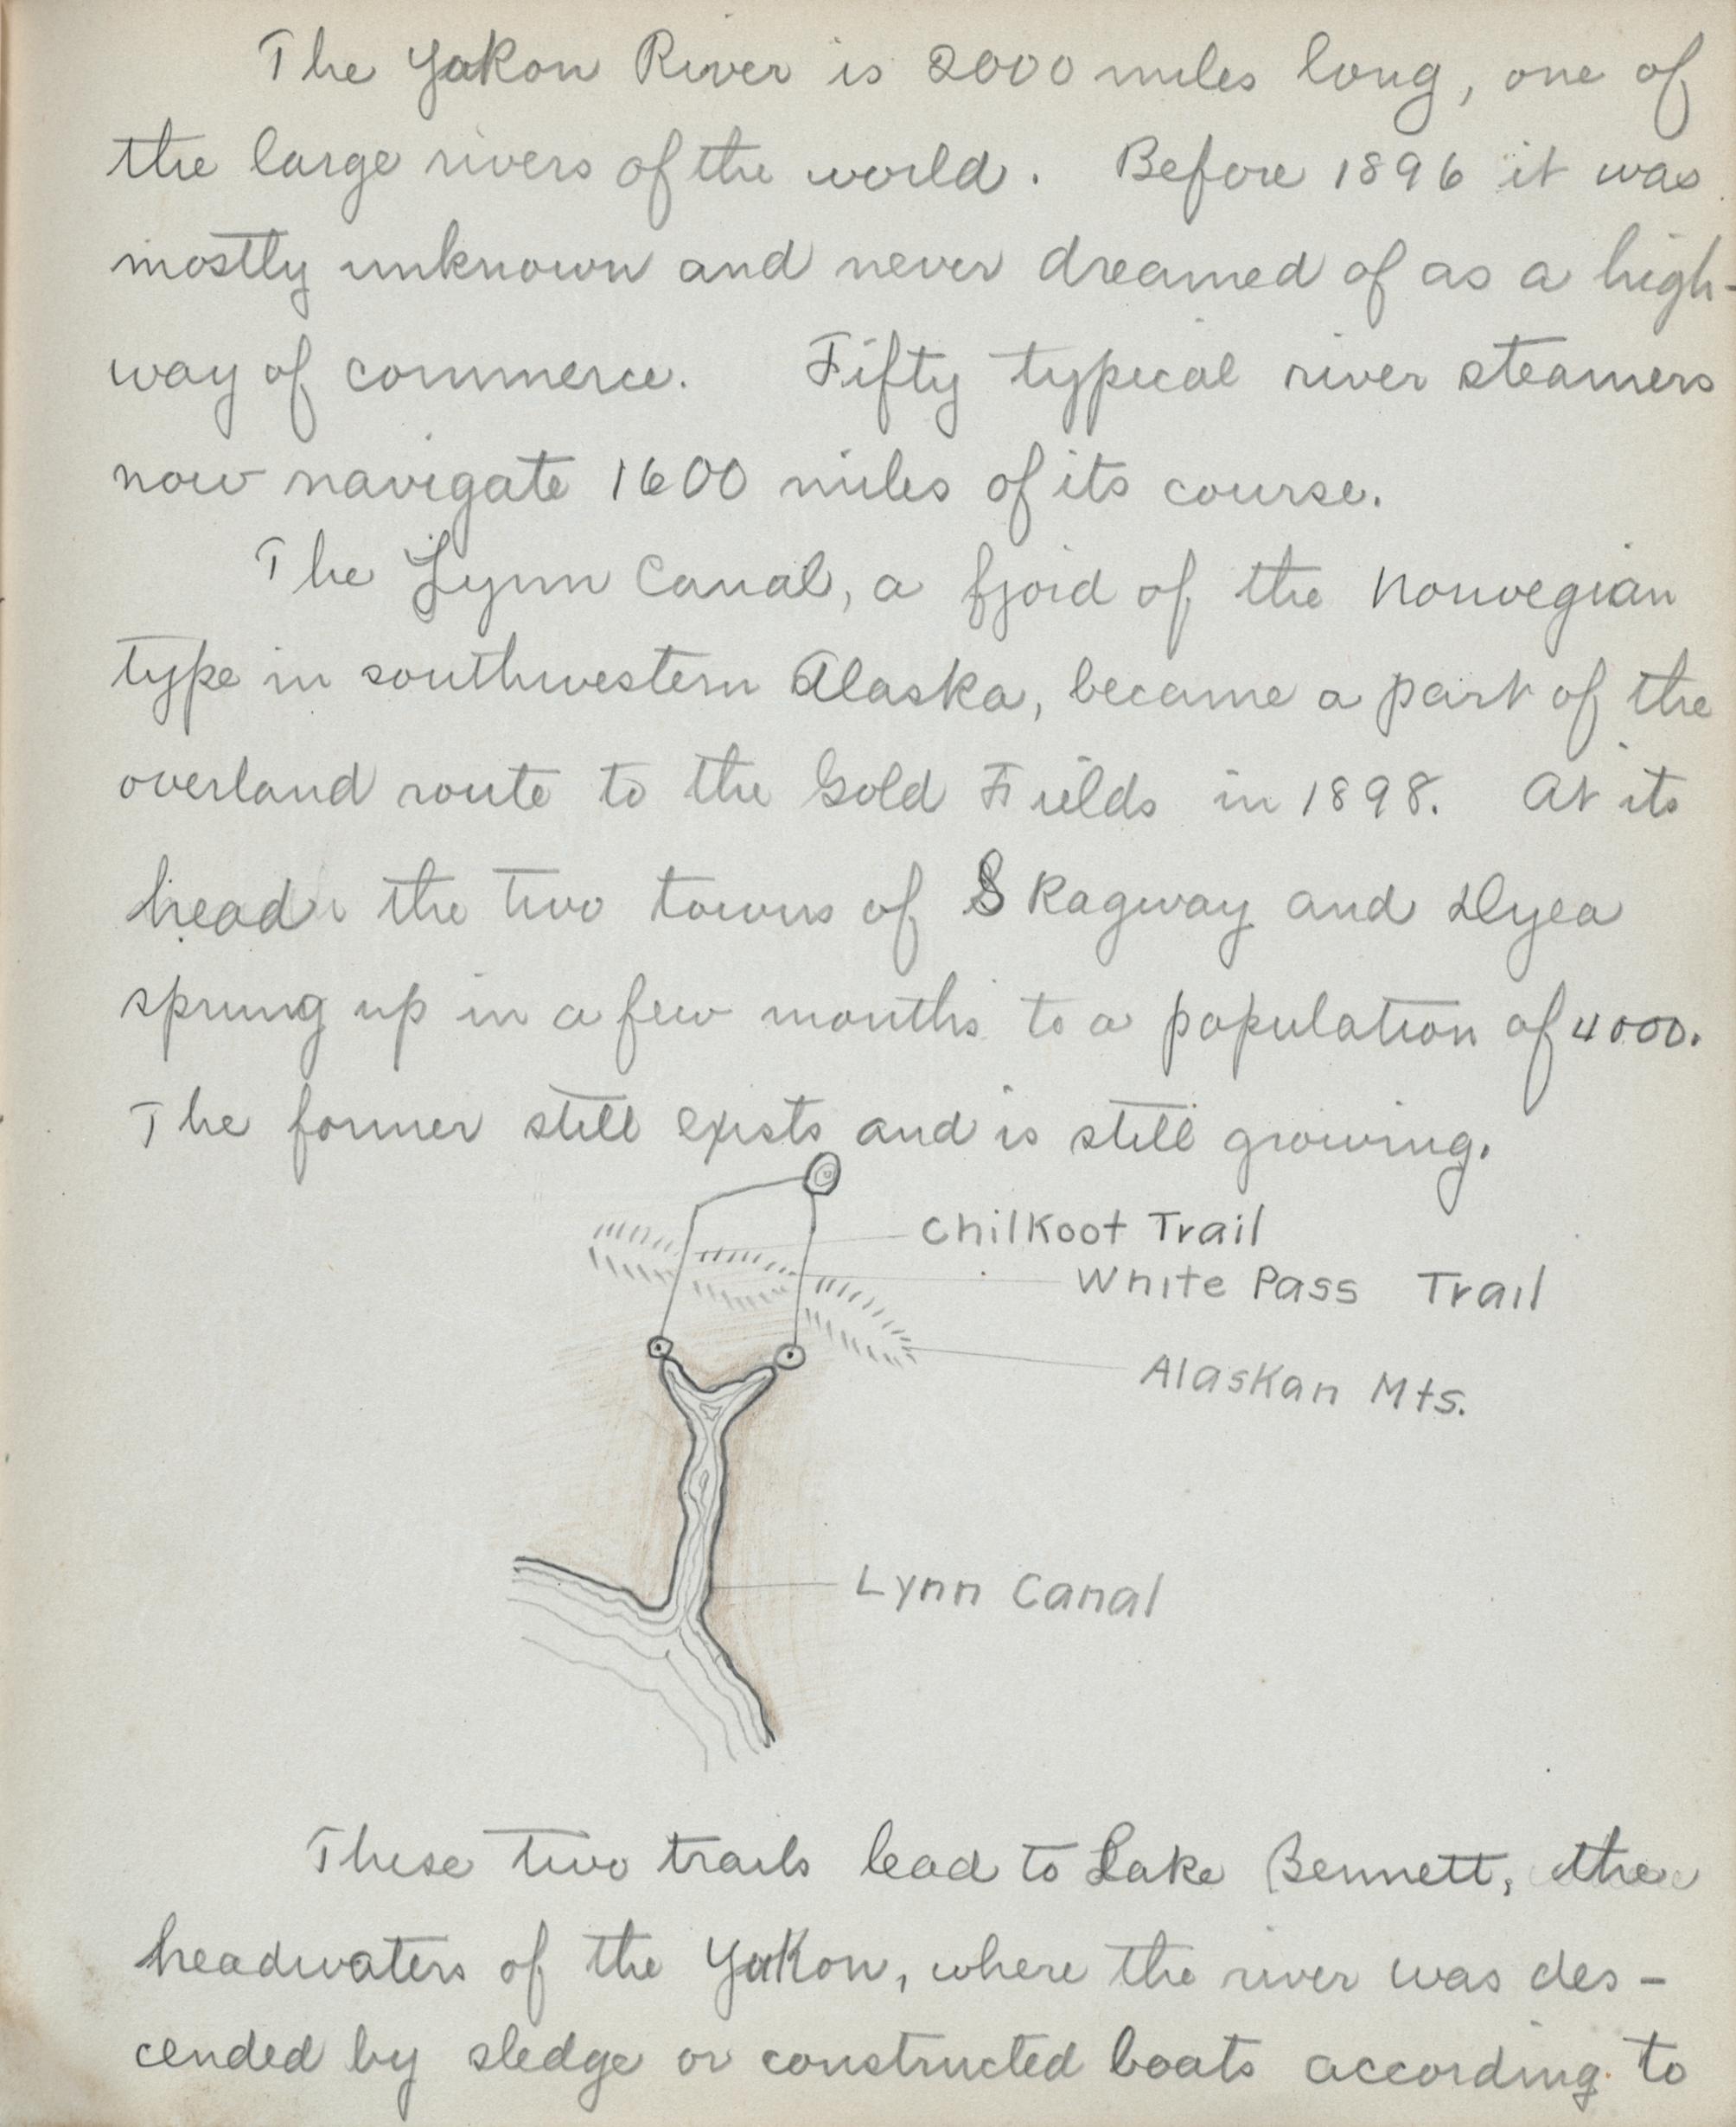 The Yukon River is 2000 miles long, one of
the large rivers of the world. Before 1896 it was
mostly unknown and never dreamed of as a high-
way of commerce. Fifty typical river steamers
now navigate 1600 miles of its course.
The Lynn Canal, a fjord of the Norwegian
type in southwestern Alaska, became a part of the
overland route to the Gold Fields in 1898. At its
head the two towns of Skagway and Dyea
sprung up in a few months to a population of 4000.
The former still exists and is still growing.
Chilkoot Trail
White Pass Trail
Alaskan Mts.
Lynn Canal
These two trails lead to Lake Bennett, the
headwaters of the Yukon, where the river was des-
cended by sledge or constructed boats according to